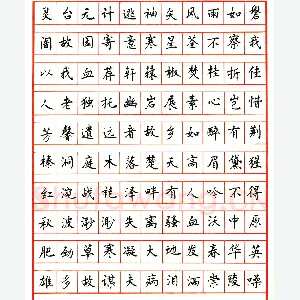 灵台无计逃神矢风雨如磐
闇故园寄意寒星荃不察我
以我血荐轩辕椒焚桂折佳
人老独托幽岩展素心岂惜
芳馨遗远者故乡如醉有荆
榛洞庭木落楚天高眉黛猩
红涴战袍泽畔有人吟不得
秋波渺渺失离骚血沃中原
肥劲草寒凝大地发春华英
雄多故谋夫病泪洒崇陵噪